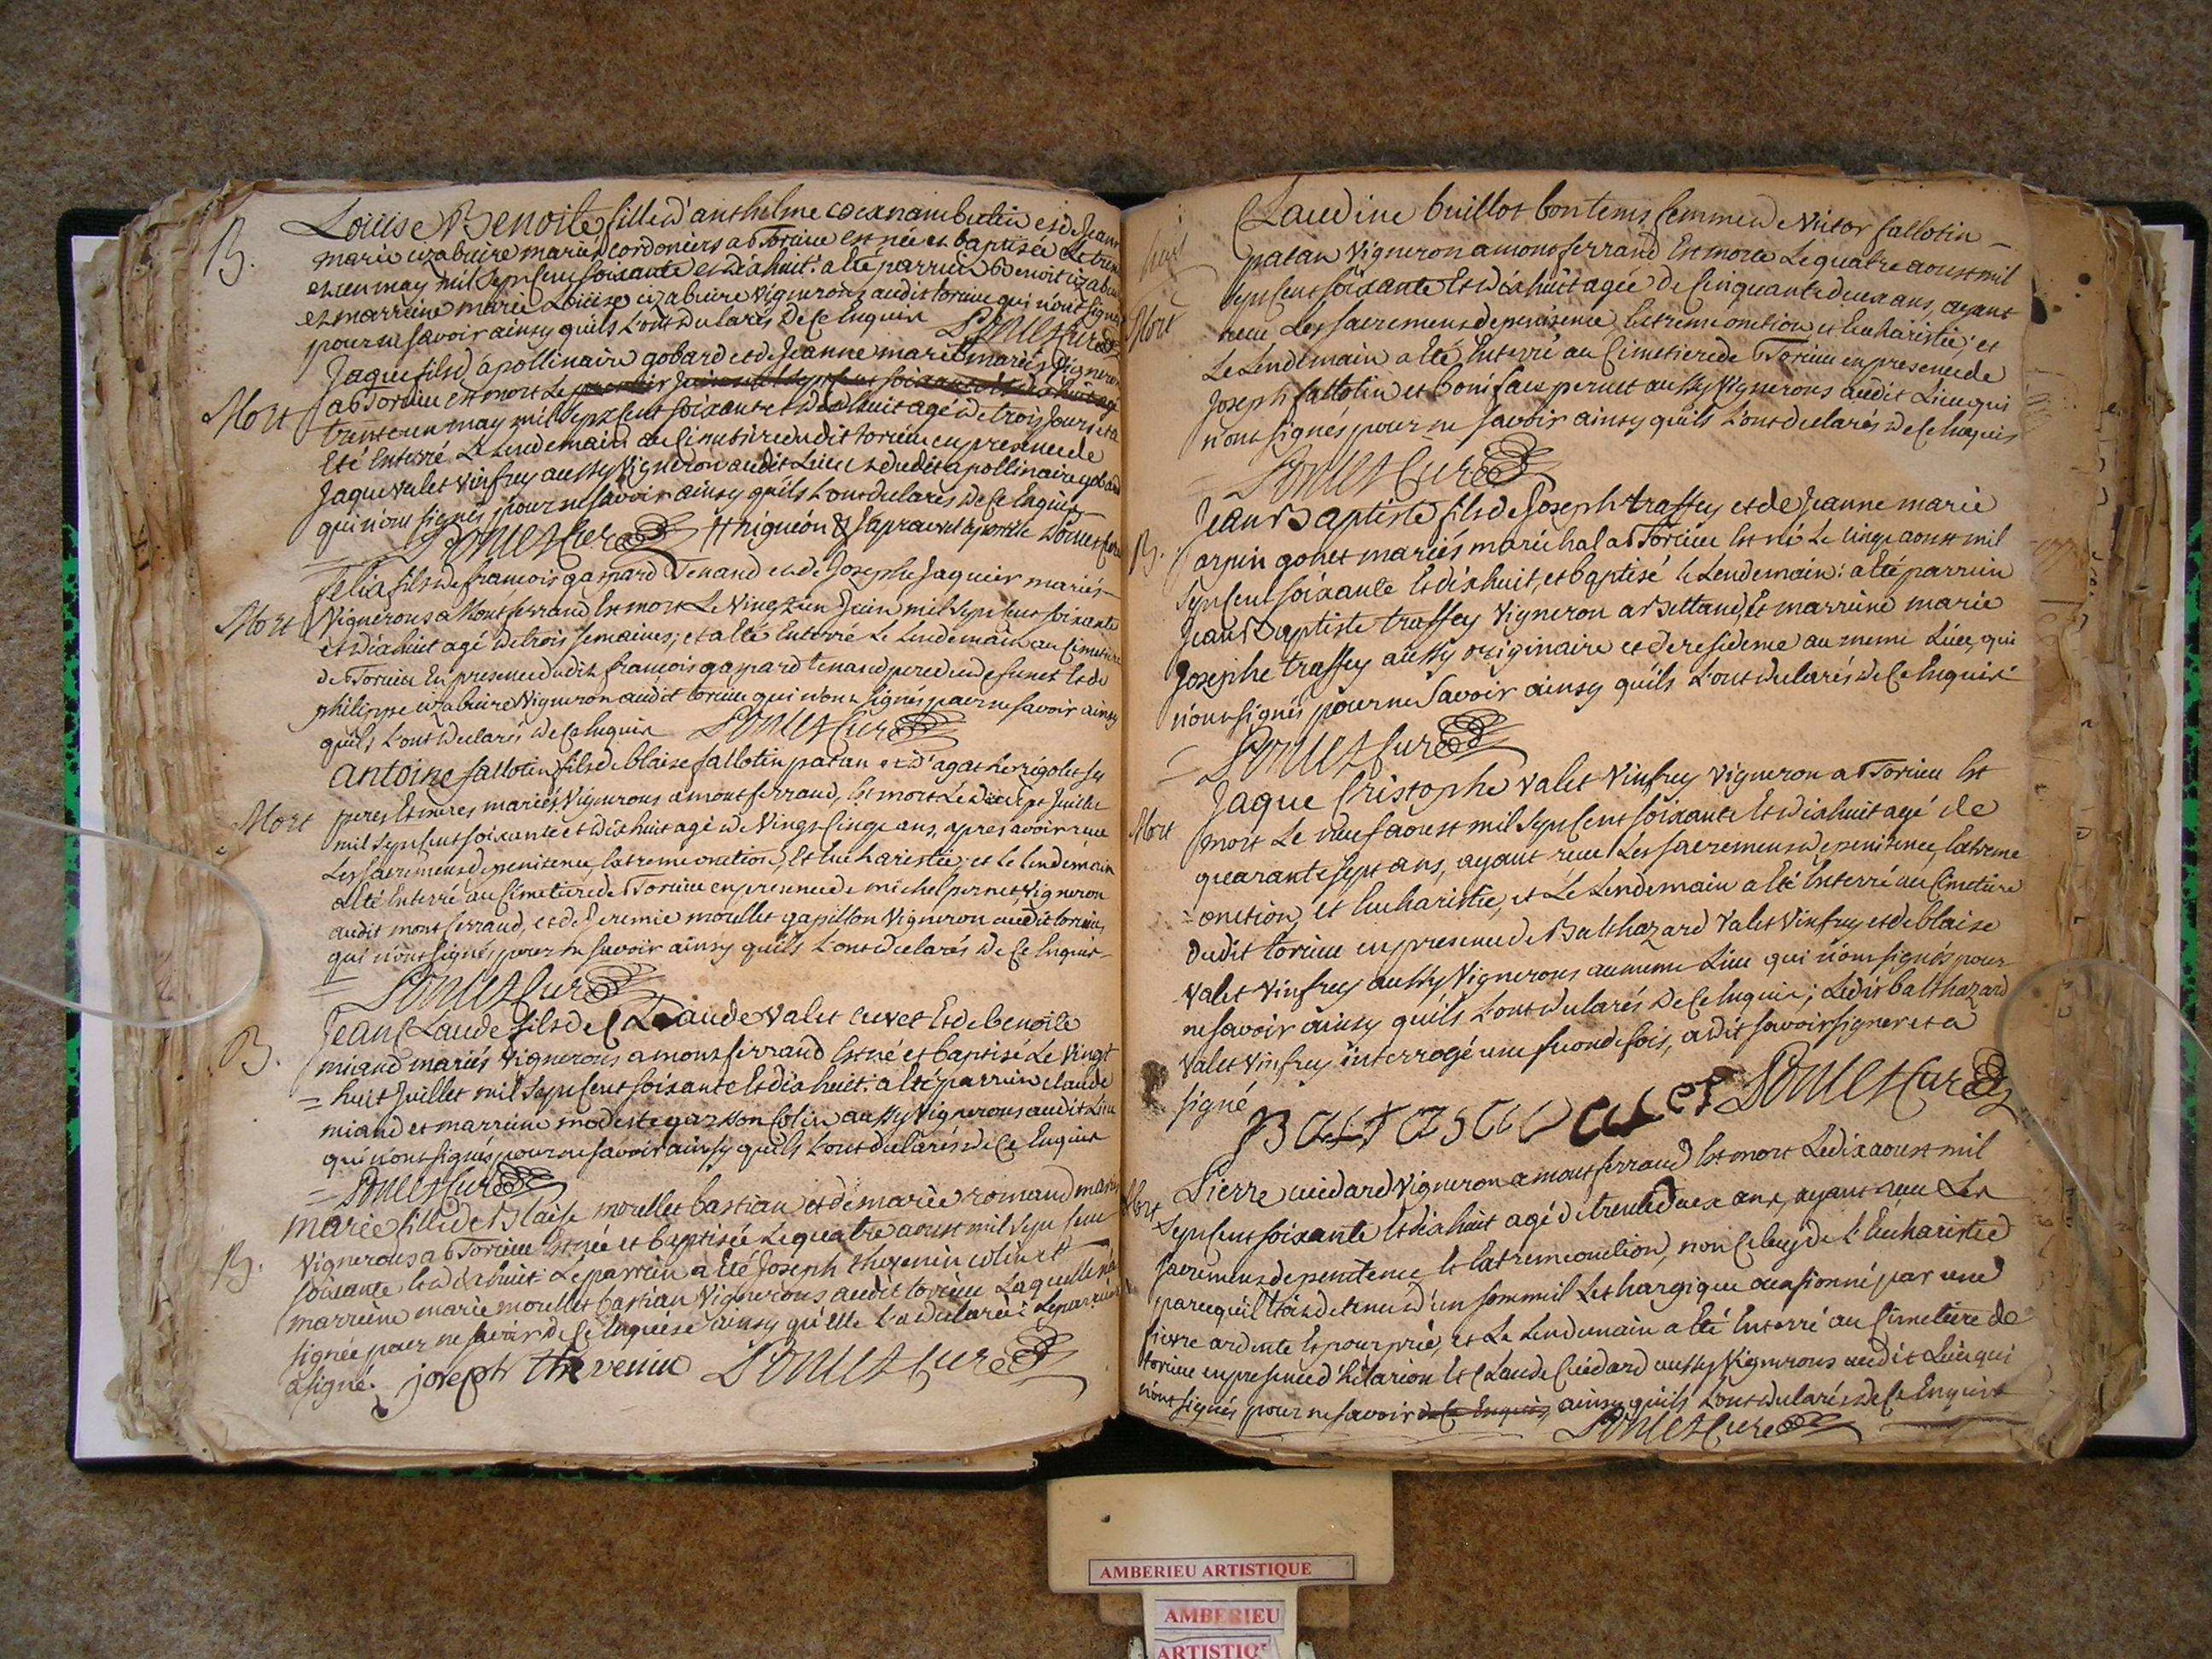 B.
Louise Benoite fille d'anthelme cocx nambutin et de Jeanne
marie cizabuire mariés cordoniers a Torcieu est née et baptisée Le trente
et un may mil Sept Cent soixante et dix huit: a eté parrein benoit cizabuire
et marreine marie Louise cizabuire vignerons audit torcieu qui n'ont signé
pour ne savoir ainsy quils L'ont declarés de Ce Enquis Poncet Curé
Mort
Jaque fils d'apollinaire gobard et de Jeanne marie mariés vignerons
a Torcieu est mort Le premier Juin mil sept cent soixante et dix huit agé
trente un may mil sept Cent soixante et dix huit agé de trois Jours et a
Eté Enterré Le Lendemain au Cimetiere dudit torcieu en presence de
Jaque valet vinfrey aussy vigneron audit Lieu et dudit apollinaire gobard
qui n'ont signés pour ne savoir ainsy quils L'ont declarés de Ce Enquis
Poncet Curé Poncet Curé
Mort
Felix fils de francois gaspard Tenand et de Josephe Jaquier mariés
Vignerons a Montferrand Est mort Le Vingt un Juin mil Sept Cent soixante
et dix huit agé de trois semaines; et a Eté Enterré Le Lendemain au Cimetiere
de Torcieu En presence dudit francois gaspard tenand pere du defunct Et de
philippe cizabuire Vigneron audit torcieu qui n'ont signés pour ne savoir ainsy
quils L'ont declarés de Ce Enquis Poncet Curé
Mort
antoine fallotin fils de blaise fallotin patan et d'agathe rigolet ses
peres Et meres mariés Vignerons a montferrand, Est mort Le dixsept Juillet
mil Sept Cent soixante et dix huit agé de Vingt Cinq ans, apres avoir reçu
Les sacremens de penitence, Extreme onction, Et Eucharistie; et Le lendemain
a Eté Enterré au Cimetiere de Torcieu en presence de michel pernet, Vigneron
audit montferrand, et de Jeremie morellet gapillon Vigneron audit torcieu,
qui n'ont signés pour ne savoir ainsy quils L'ont declarés de Ce Enquis
Poncet Curé
B.
Jean Claude fils de Claude valet cuvet Et de benoite
miand mariés Vignerons a montferrand Est né et baptisé Le Vingt
huit Juillet mil Sept Cent soixante Et dix huit: a Eté parrein claude
miand et marreine modeste gazon Colin aussy Vignerons audit Lieu
qui n'ont signés pour ne savoir ainsy quils L'ont declarés de Ce Enquis
Poncet Curé
B.
marie fille de Blaise morellet bastian et de marie romand mariés
Vignerons a Torcieu Est née et baptisée Le quatre aoust mil Sept Cent
soixante Et dix huit: Le parrein a Eté Joseph thevenin colin et
marreine marie morellet bastian Vignerons audit torcieu Laquelle n'a
signée pour ne savoir de Ce Enquise ainsy qu'elle L'a declarée: Le parrein
a signé. joseph thevenin Poncet Curé
Mort
Claudine buillot bontems femme de Victor fallotin
patan Vigneron a montferrand Est morte Le quatre aoust mil
Sept Cent soixante Et dix huit agée de Cinquante deux ans, ayant
reçu Les sacremens de penitence, Extreme onction et Eucharistie; et
Le Lendemain a Eté Enterré au Cimetiere de Torcieu en presence de
Joseph fallotin et boniface pernet aussy Vignerons audit Lieu qui
n'ont signés pour ne savoir ainsy quils L'ont declarés de Ce Enquis
Poncet Curé
B.
Jean Baptiste fils de Joseph traffey et de Jeanne marie
arpin gonet mariés maréchal a Torcieu Est né Le cinq aoust mil
Sept Cent soixante Et dix huit, et baptisé Le Lendemain: a Eté parrein
Jean Baptiste traffey Vigneron a Bettand, Et marreine marie
Josephe traffey aussy originaire et de residence au meme Lieu, qui
n'ont signés pour ne Savoir ainsy quils L'ont declarés de Ce Enquis
Poncet Curé
Mort
Jaque Cristophe valet vinfrey vigneron a Torcieu Est
mort Le neuf aoust mil Sept Cent soixante Et dix huit agé de
quarante sept ans, ayant reçu Les sacremens de penitence, Extreme
onction, et Eucharistie, et Le Lendemain a Eté Enterré au Cimetiere
dudit torcieu en presence de Balthazard Valet Vinfrey et de blaise
Valet Vinfrey aussy Vignerons au meme Lieu qui n'ont signés pour
ne savoir ainsy quils L'ont declarés de Ce Enquis; Ledit balthazard
Valet Vinfrey interrogé une seconde fois, a dit savoir signer et a
signé
Poncet Curé
Mort
Pierre cuidard Vigneron a montferrand Est mort Le dix aoust mil
Sept Cent soixante Et dix huit agé de trente deux ans, ayant reçu Les
sacremens de penitence Et Extreme onction, non Celuy de L'Eucharistie
parcequil Etoit detenu d'un sommeil Lethargique occasionné par une
fievre ardente Et pourprée, et Le Lendemain a Eté Enterré au Cimetiere de
torcieu en presence d'hilarion Et Claude Cuidard aussy Vignerons audit Lieu qui
n'ont signés pour ne savoir de Ce Enquis, ainsy quils L'ont declarés de Ce Enquis
Poncet Curé
AMBERIEU ARTISTIQUE
AMBERIEU